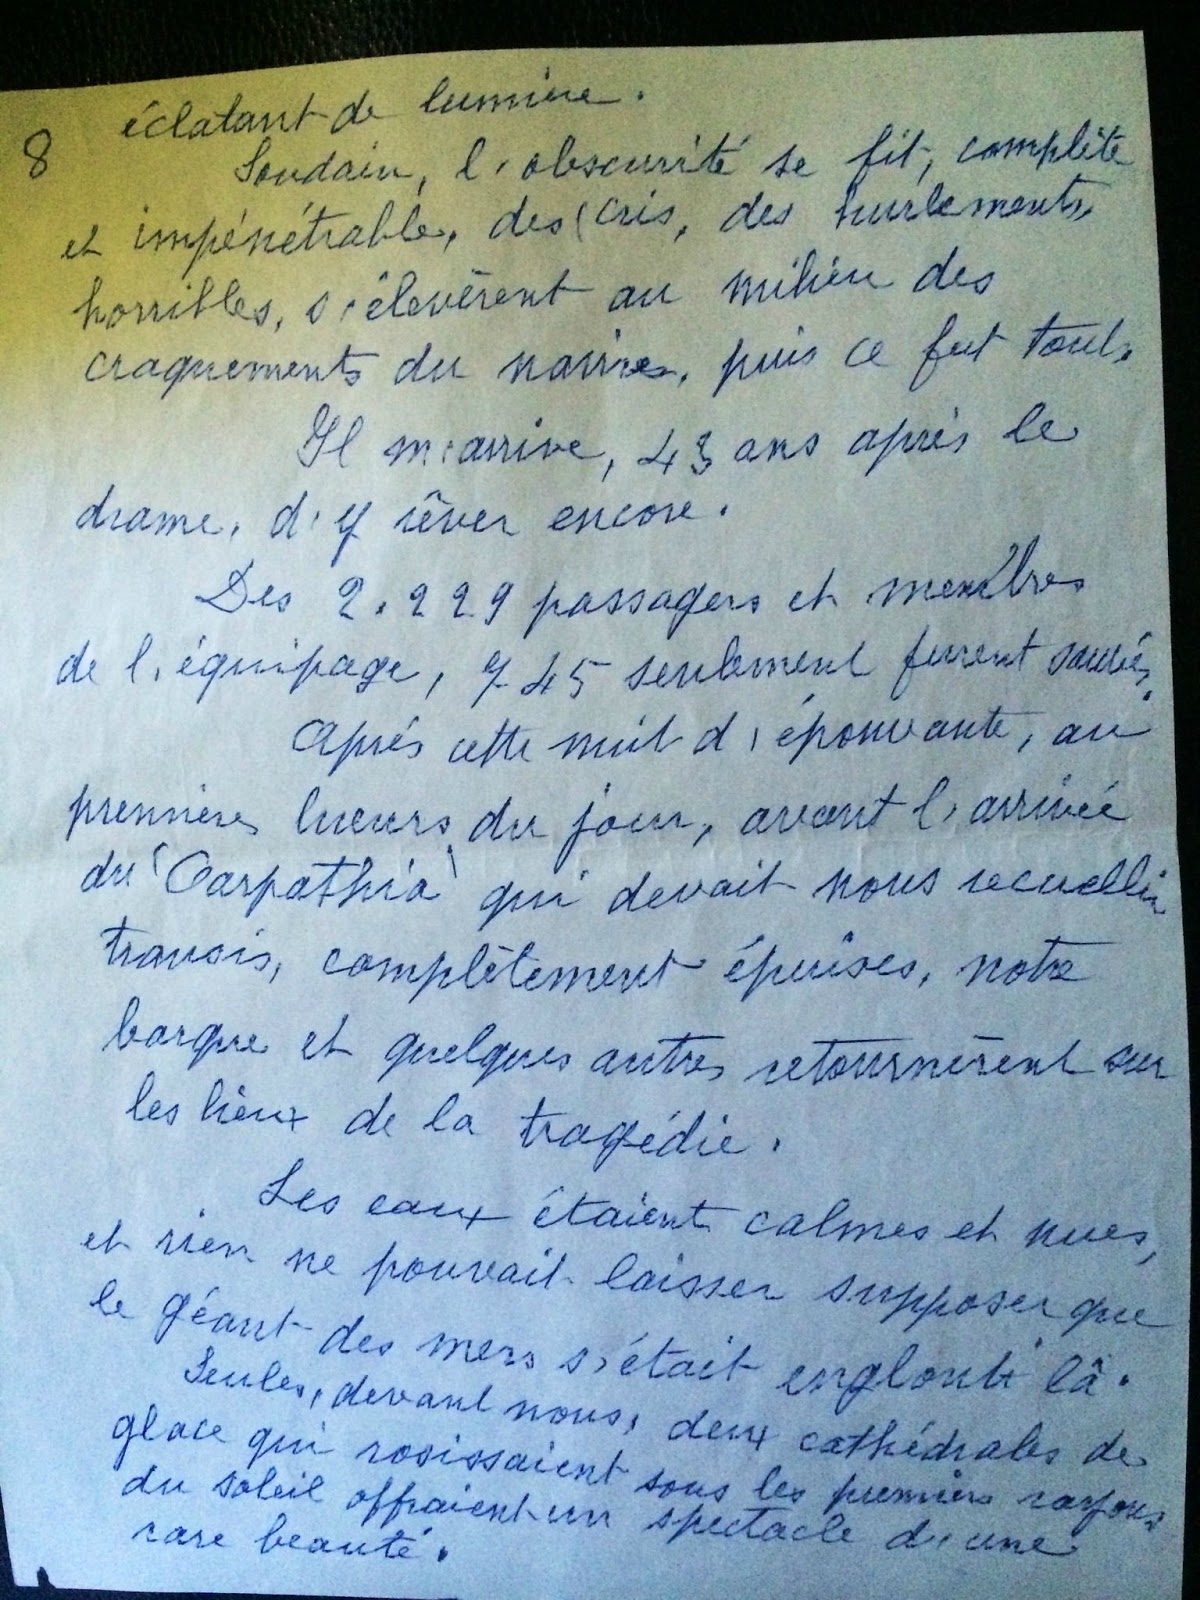 8
éclatant de lumière.
Soudain, l'obscurité se fit, complète
et impénétrable, des cris, des hurlements,
horribles, s'élevèrent au milieu des
craquements du navire, puis ce fut tout.
Il m'arrive, 43 ans après le
drame, d'y rêver encore.
Des 2.229 passagers et membres
de l'équipage, 745 seulement furent sauvés.
Après cette nuit d'épouvante, au
premières lueurs du jour, avant l'arrivée
du "Carpathia" qui devait nous recueillir
transis, complètement épuisés, notre
barque et quelques autres retournèrent sur
les lieux de la tragédie.
Les eaux étaient calmes et nues,
et rien ne pouvait laisser supposer que
le géant des mers s'était englouti là.
Seules, devant nous, deux cathédrales de
glace qui rosissaient sous les premiers rayons
du soleil offraient un spectacle d'une
rare beauté.